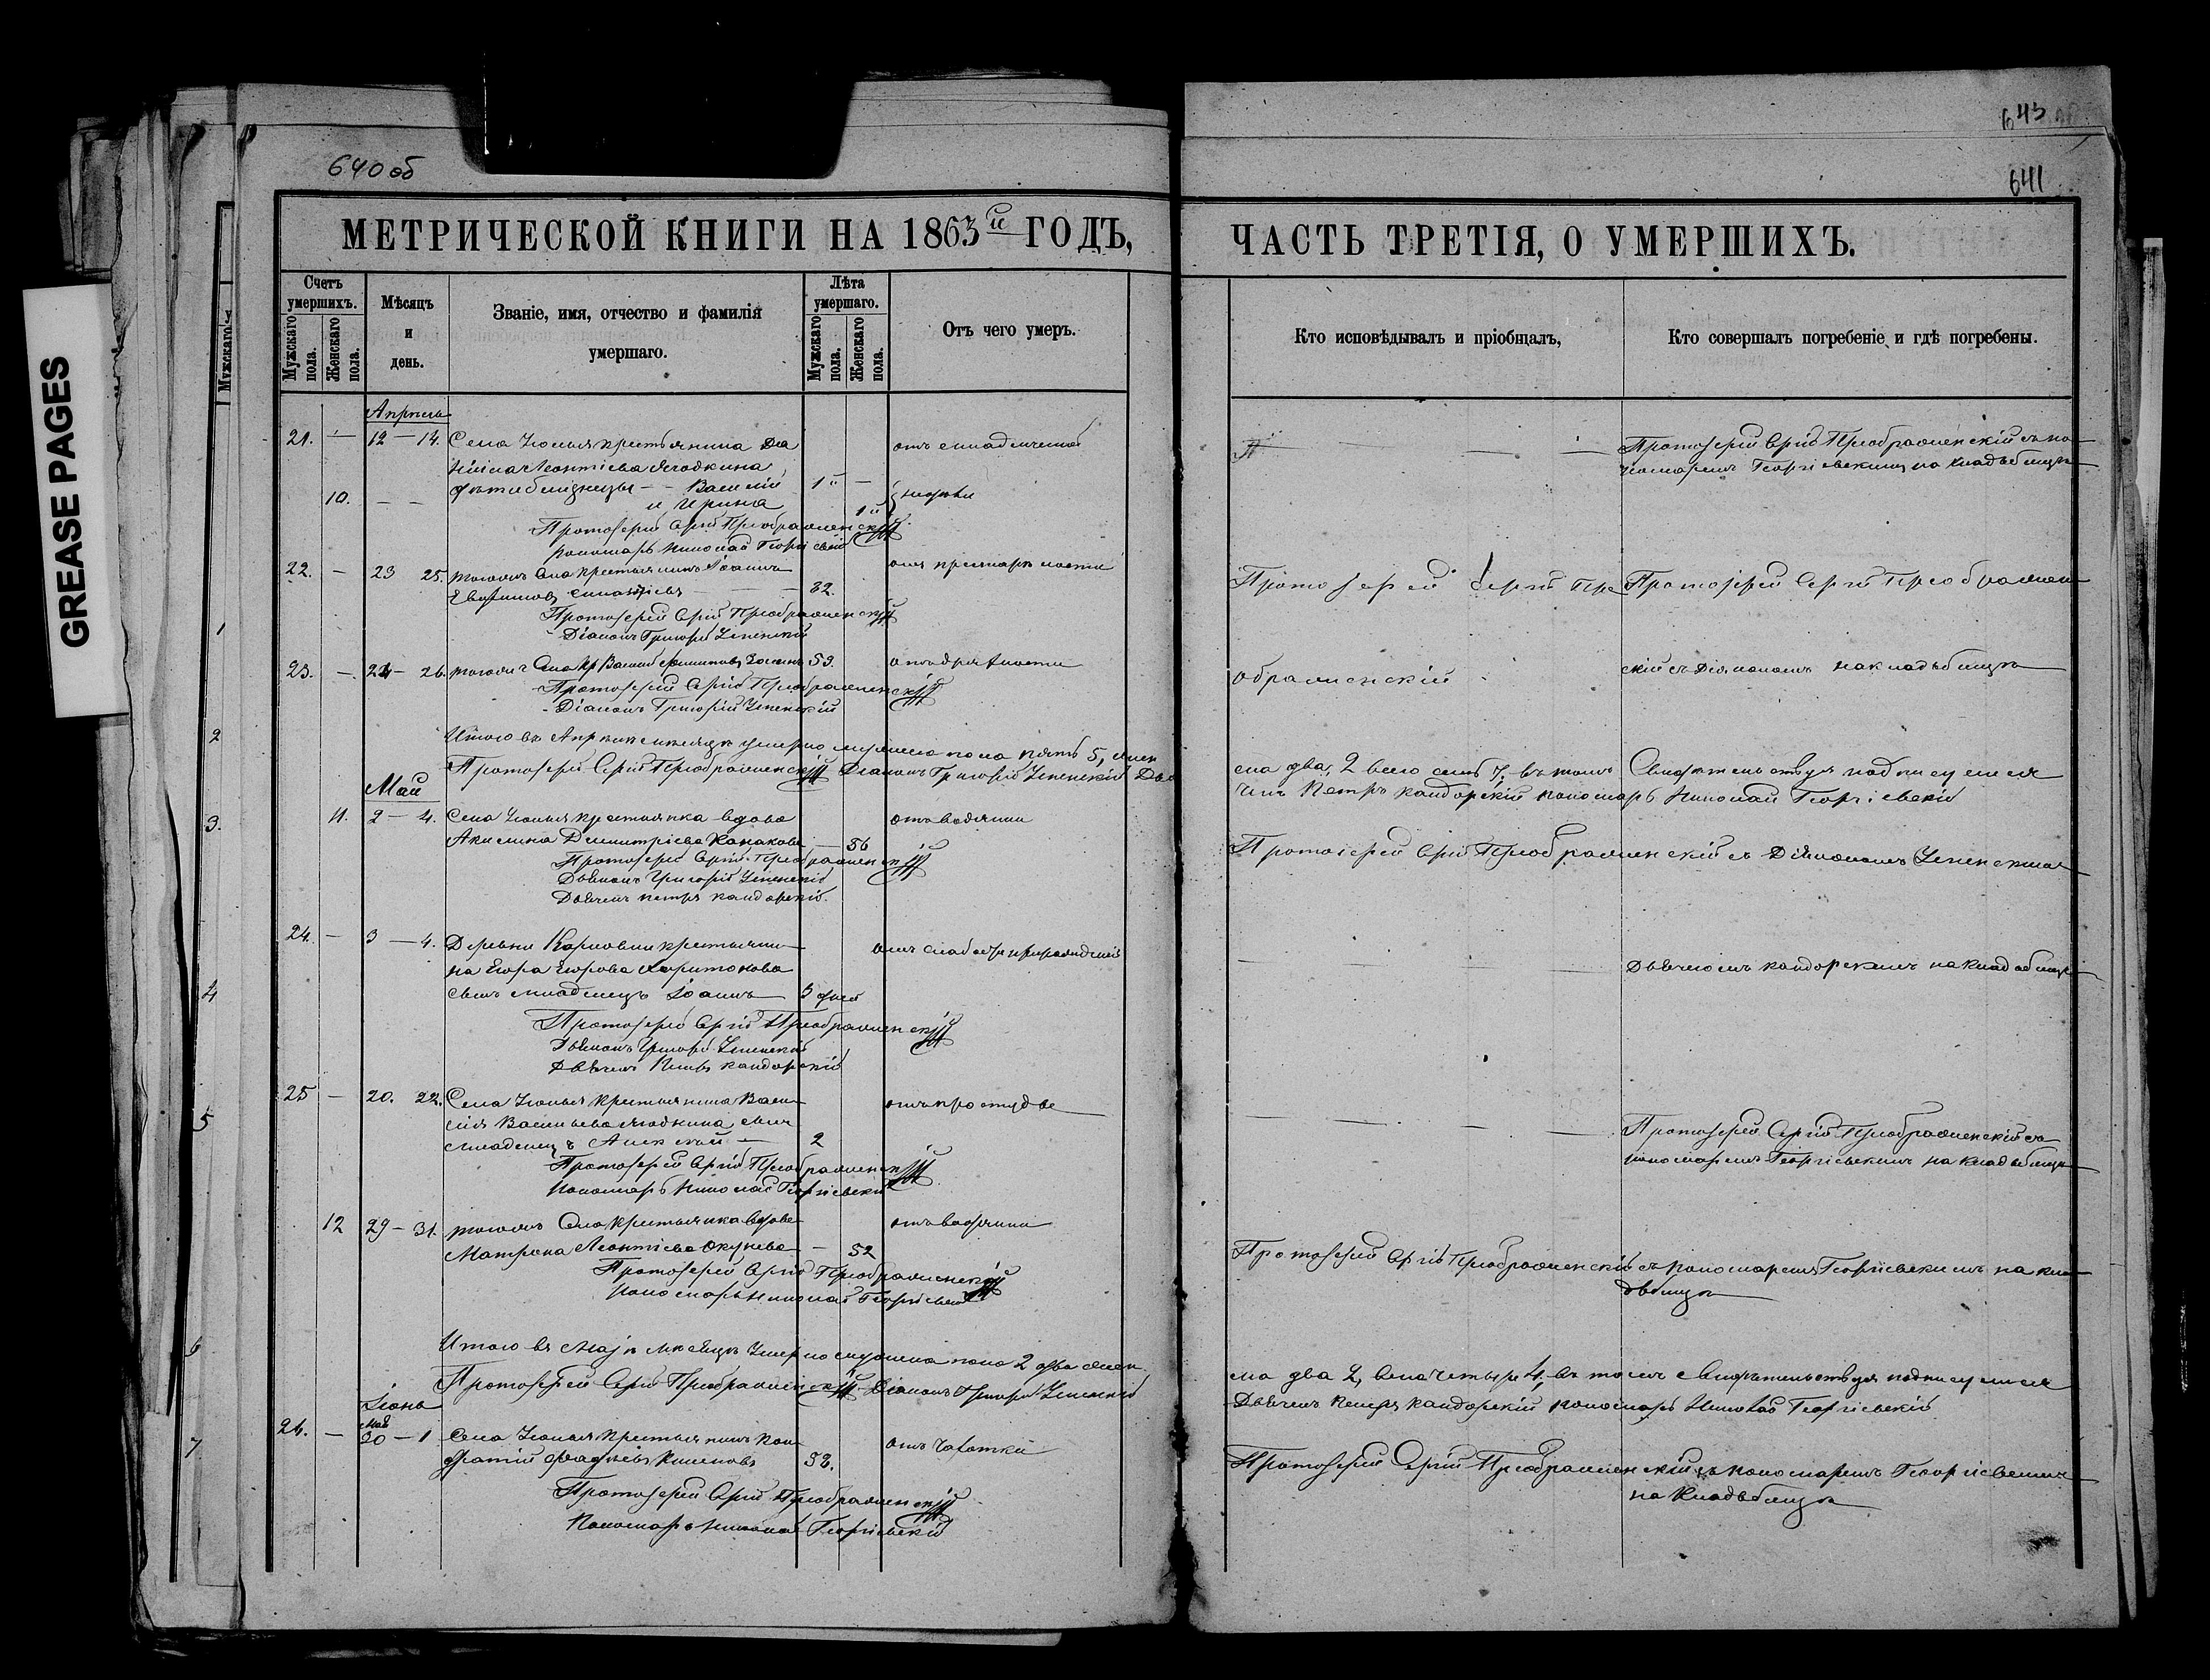 GREASE PAGES
640 об
643
641
МЕТРИЧЕСКОЙ КНИГИ НА 1863й ГОДЪ,
ЧАСТЬ ТРЕТІЯ, О УМЕРШИХЪ.
Счетъ умершихъ.
Мужскаго пола.
Женскаго пола.
Мѣсяцъ и день.
Званіе, имя, отчество и фамилія умершаго.
Лѣта умершаго.
Мужскаго пола.
Женскаго пола.
Отъ чего умеръ.
Кто исповѣдывалъ и пріобщалъ,
Кто совершалъ погребеніе и гдѣ погребены.
Апрѣль
21. — 12 — 14. Села крестьянина Да
ніила Леонтіева Ягодкина
дѣти близнецы — Василій 1
10. — — и Ирина 1 недѣли
Протоіерей Сергій Преображенскій
пономарь Николай Георгіевскій
Протоіерей Сергій Преображенскій съ по
номаремъ Георгіевскимъ на кладбищѣ
22. — 23 25. тогожъ села крестьянинъ Іоаннъ
32.
Протоіерей Сергій Преображенскій
Діаконъ Григорій Успенскій
Протоіерей Сергій Пре
Протоіерей Сергій Преображен
23. — 24 — 26. тогожъ села кр Василій 59. отъ дряхлости
Протоіерей Сергій Преображенскій
Діаконъ Григорій Успенскій
ображенскій
скій съ Діакономъ на кладбищѣ
Итого въ Апрѣлѣ мѣсяцѣ умерло мужеска пола пять 5, жен
ска два, 2 всего семь 7, въ томъ Свидѣтельствуя подписуемся
Протоіерей Сергій Преображенскій Діаконъ Григорій Успенскій Дья
чекъ Петръ Кандорскій пономарь Николай Георгіевскій
Май
11. 2 — 4. Села крестьянка вдова отъ водянки
Акилина Димитріева Канакова — 56
Протоіерей Сергій Преображенскій
Діаконъ Григорій Успенскій
Дьячекъ Петръ Кандорскій.
Протоіерей Сергій Преображенскій съ Діакономъ Успенскимъ
24. — 3 — 4. Деревни крестьяни отъ слабости при рожденіи
на Егора Егорова Харитонова
сынъ младенецъ Іоаннъ 3 дней
Протоіерей Сергій Преображенскій
Діаконъ Григорій Успенскій
Дьячекъ Петръ Кандорскій
Дьячкомъ Кандорскимъ на кладбищѣ
25 — 20. 22. Села крестьянина Васи отъ простуды
лія Васильева Ягодкина сынъ
младенецъ Алексѣй — 2
Протоіерей Сергій Преображенскій
Пономарь Николай Георгіевскій
Протоіерей Сергій Преображенскій съ
пономаремъ Георгіевскимъ на кладбищѣ
12 29 — 31. тогожъ села крестьянка вдова отъ водянки
Матрона Леонтіева Окунева — 52
Протоіерей Сергій Преображенскій
пономарь Николай Георгіевскій
Протоіерей Сергій Преображенскій съ пономаремъ Георгіевскимъ на кла
дбищѣ
Итого въ Маѣ мѣсяцѣ умерло мужеска пола 2 два жен
ска два 2, всего четыре 4, въ томъ свидѣтельствуя подписуемся
Протоіерей Сергій Преображенскій Діаконъ Григорій Успенскій
Дьячекъ Петръ Кандорскій пономарь Николай Георгіевскій.
Іюнь
26. — май 30 — 1 Села крестьянинъ Кон отъ чахотки
дратій 52.
Протоіерей Сергій Преображенскій
Пономарь Николай Георгіевскій
Протоіерей Сергій Преображенскій съ пономаремъ Георгіевскимъ
на кладбищѣ